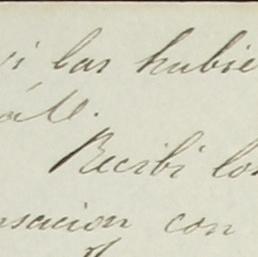 si las hubie
ate.
Recibi los
nsacion con